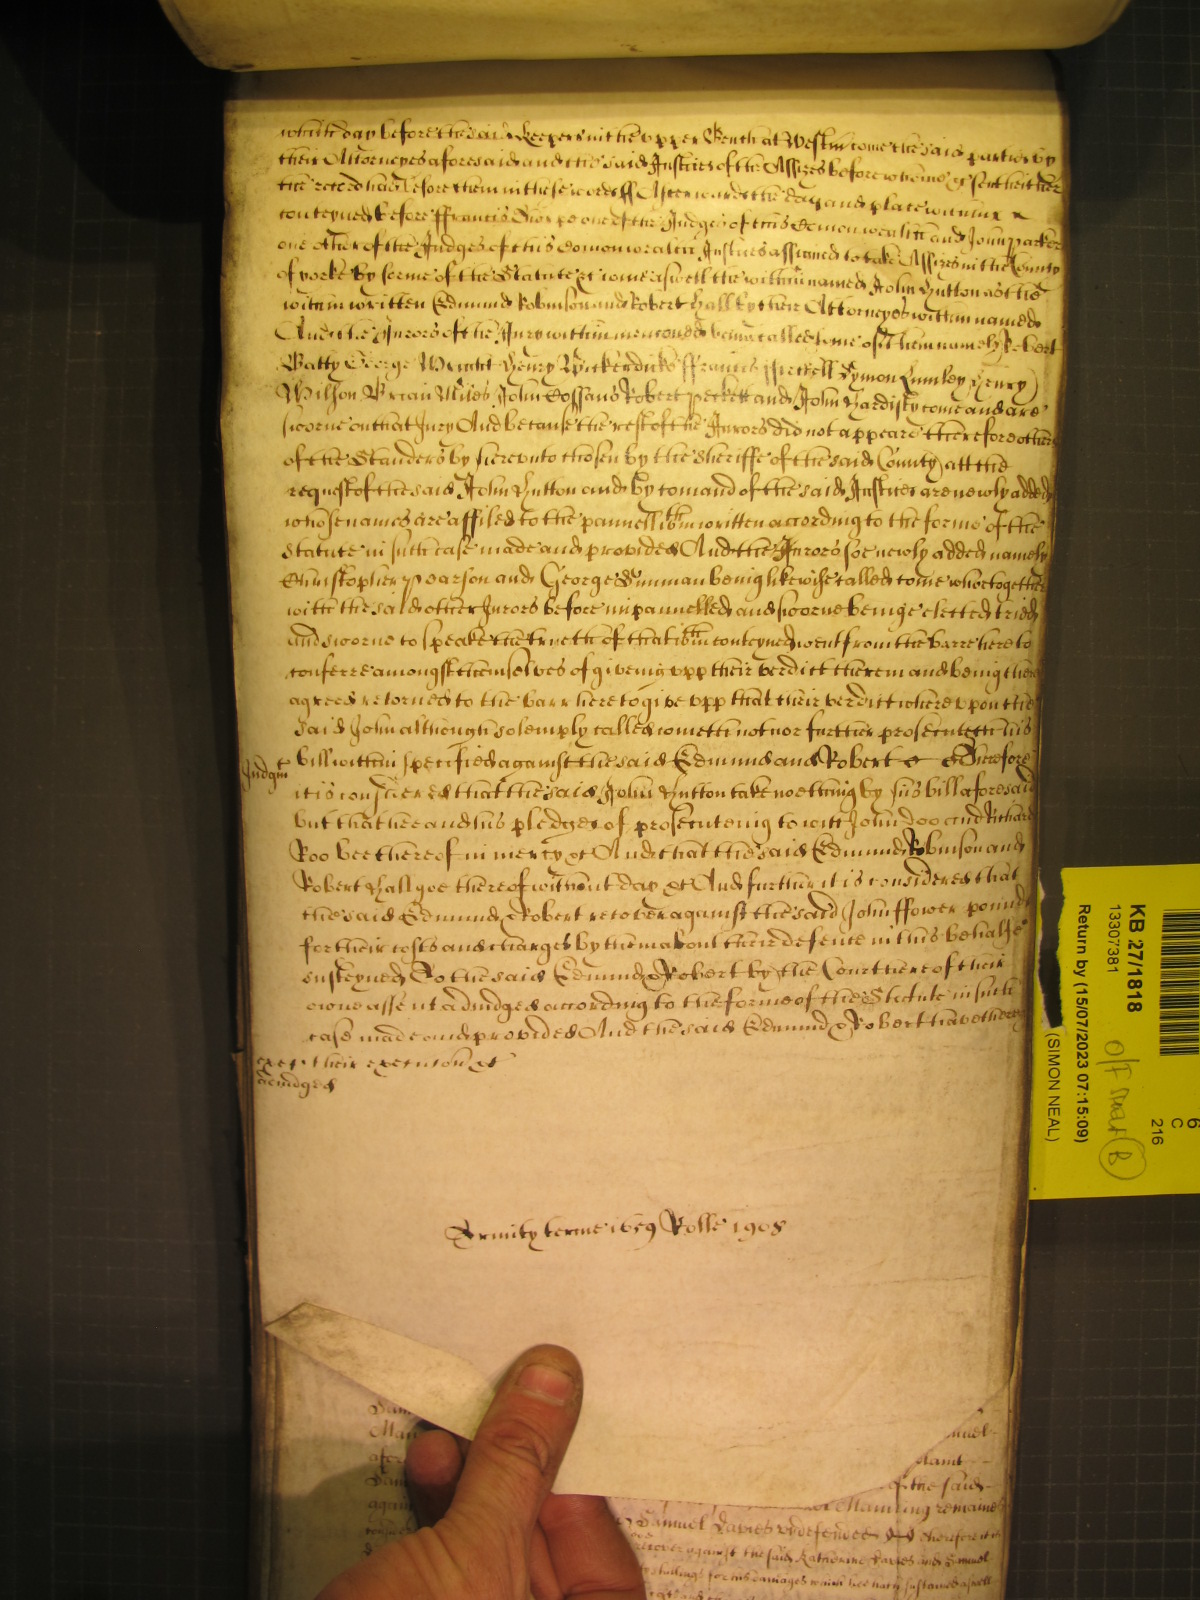 which day before the said keepers in the vpper Bench at Westm come the said parties by
their Attorneyes aforesaid and the said Justices of the Assizes before whome &c sent hither
the record had before them in these words ss Afterwards the day and place within
conteyned before ffrancis Thorpe one of the Judges of this Comonwealth and John Parker
one other of the Judges of this Comonwealth Justices assigned to take Assizes in the County
of yorke by forme of the Statute &c come aswell the within named John Hutton as the
within written Edmund Robinson and Robert Hall by their Attorneyes within named
And the Jurors of the Jury within menconed being called some of them namely Robert
Batty George Wright Henry Bickerdicke ffrancis Symon Lumley Henry
Wilson Brian Miles John Cossans Robert Peckett and John Hardisty come and are
sworne on that Jury And because the rest of the Jurors did not appeare therefore others
of the Standers by hereunto chosen by the Sheriffe of the said County att the
request of the said John Hutton and by comand of the said Justices are newly added
whose names are affiled to the pannell wthin written according to the forme of the
statute in such case made and provided And the Jurors soe newly added namely
Christopher Pearson and George Inman being likewise called come who together
with the said other Jurors before inpannelled and sworne being elected tried
and sworne to speake the trueth of that wthin conteyned went from the barre here to
conferre amongst themselves of giveing vpp their verdict therein and being then
agreed retorned to the barr here to give vpp that their verdict wherevpon the
said John although solemply called cometh not nor further prosecuteth his
Judgmt
bill within specified against the said Edmund and Robert Therefore
it is considered that the said John Hutton take nothing by his bill aforesaid
but that hee and his pledges of prosecuteing to witt John Doo and Richard
Roo bee thereof in mercy &c And that the said Edmund Robinson and
Robert Hall goe thereof without day &c And further it is considered that
the said Edmund & Robert recover against the said John ffower pounds
for their costs and charges by them about their defence in this behalfe
susteyned To the said Edmund & Robert by the Court here of their
owne assent adiudged according to the forme of the Statute in such
case made and provided And the said Edmund & Robert have thereof
their execucion &c
Trinity terme 1659 Rolle 1908
KB 27/1818
13307381
Return by (15/07/2023 07:15:09)
(SIMON NEAL)
216
C
6
B
the said
Manning remaines
Samuel Davies defendt therefore it is
recover against the said Katherine Davies and Samuel
shillings for his damages which hee hath sustained aswell